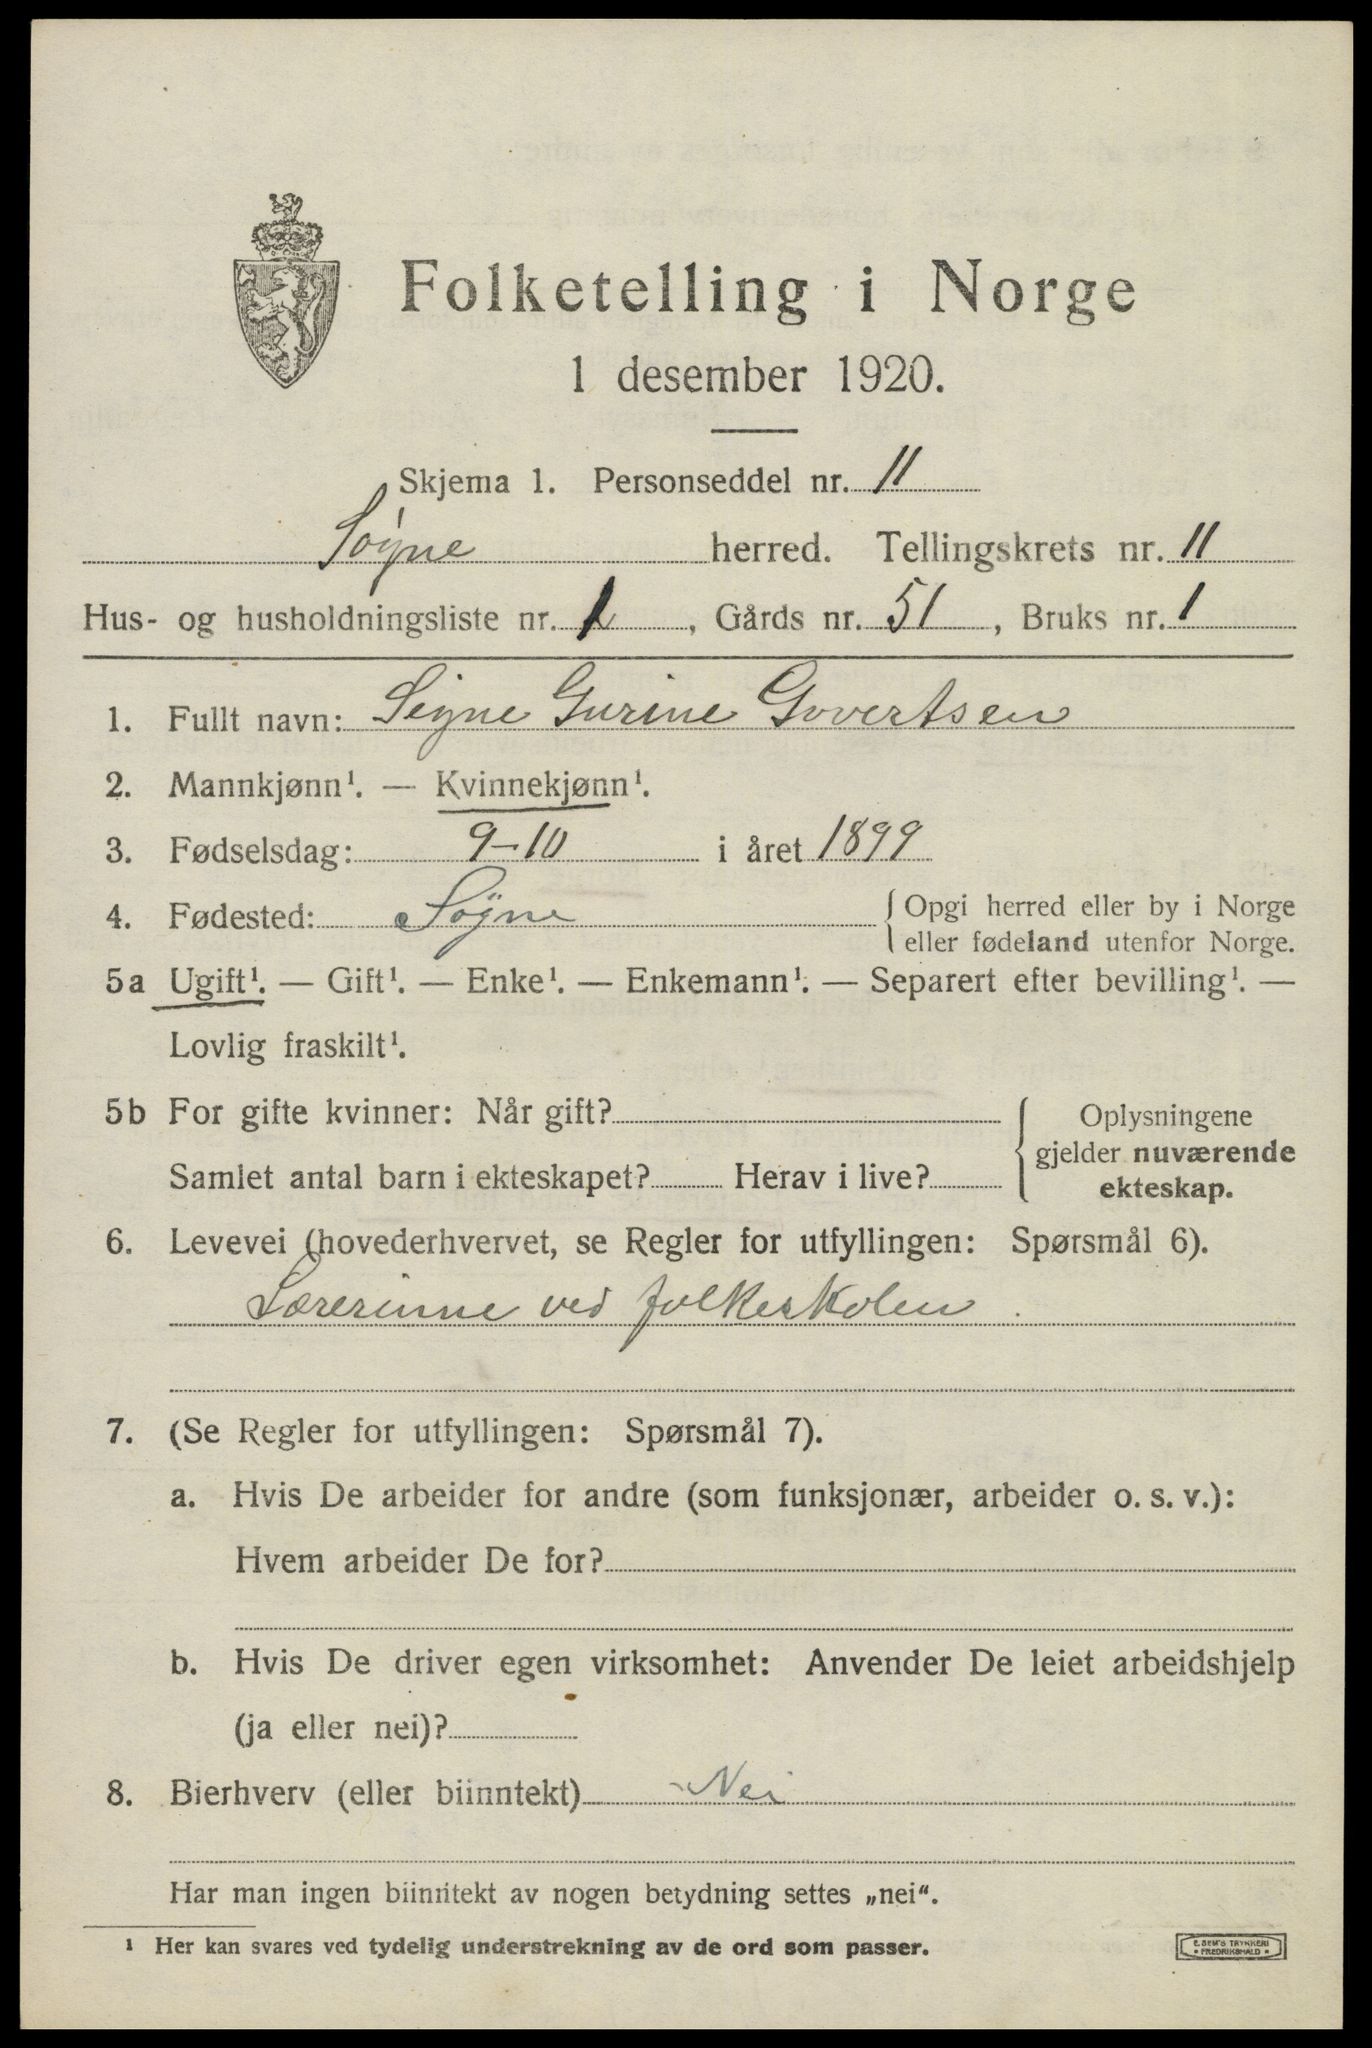 Folketelling i Norge
1 desember 1920.
Skjema 1. Personseddel nr. 11
Søgne herred. Tellingskrets nr. 11
Hus- og husholdningsliste nr. 1, Gårds nr. 51, Bruks nr. 1
1. Fullt navn: Signe Gurine Govertsen
2. Mannkjønn¹. — Kvinnekjønn¹.
3. Fødselsdag: 9-10 i året 1899
4. Fødested: Søgne { Opgi herred eller by i Norge
eller fødeland utenfor Norge.
5a Ugift¹. — Gift¹. — Enke¹. — Enkemann¹. — Separert efter bevilling¹. —
Lovlig fraskilt¹.
5b For gifte kvinner: Når gift?
Samlet antal barn i ekteskapet? Herav i live?
{ Oplysningene
gjelder nuværende
ekteskap.
6. Levevei (hovederhvervet, se Regler for utfyllingen: Spørsmål 6).
Lærerinne ved folkeskolen.
7. (Se Regler for utfyllingen: Spørsmål 7).
a. Hvis De arbeider for andre (som funksjonær, arbeider o. s. v.):
Hvem arbeider De for?
b. Hvis De driver egen virksomhet: Anvender De leiet arbeidshjelp
(ja eller nei)?
8. Bierhverv (eller biinntekt) Nei
Har man ingen biinntekt av nogen betydning settes „nei“.
¹ Her kan svares ved tydelig understrekning av de ord som passer.
E. SEM'S TRYKKERI
• FREDRIKSHALD •